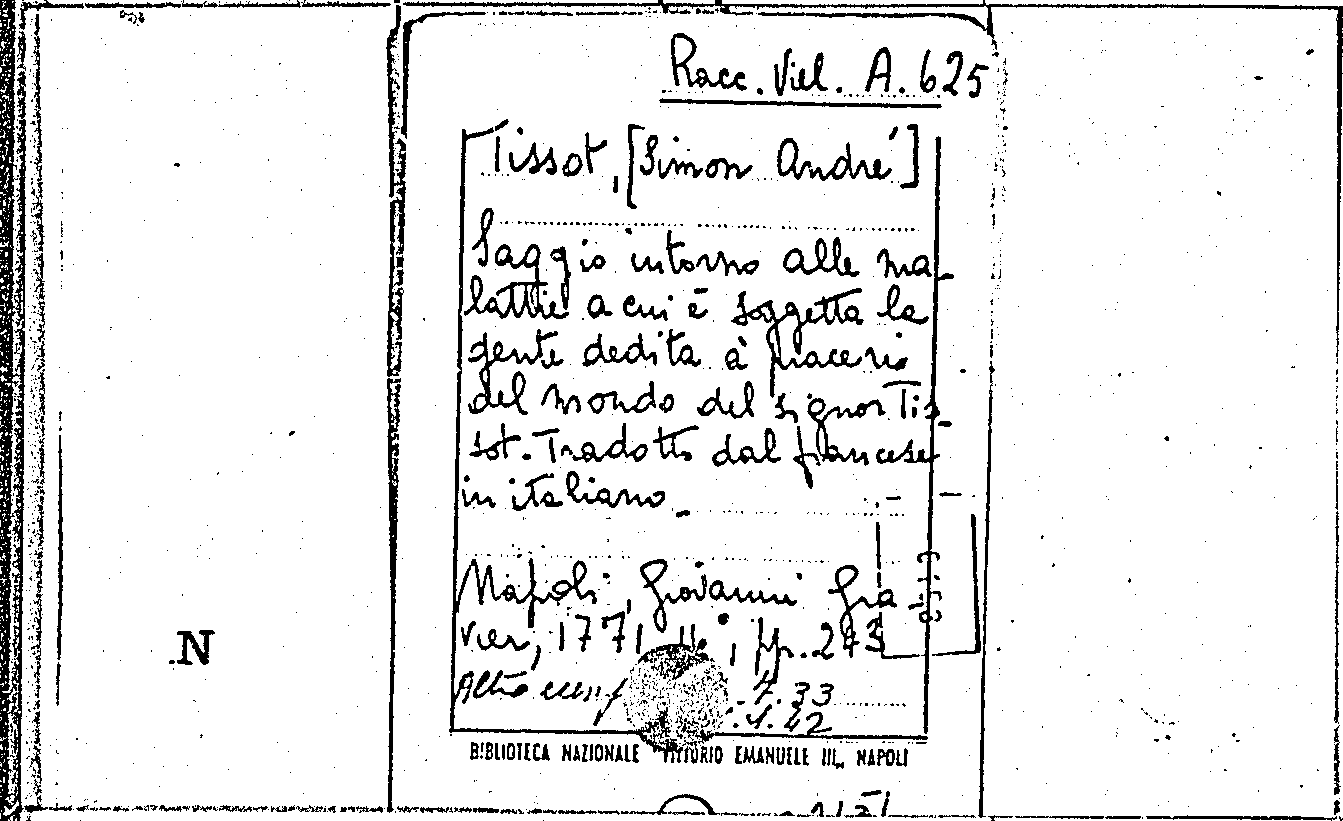 Racc. Vill. A. 625
Tissot, [Simon André]
Saggio intorno alle ma-
lattie a cui è soggetta la
gente dedita à piaceri
del mondo del signor Tis-
sot. Tradotto dal francese
in italiano.
Napoli, Giovanni Gra-
vier, 1771, pp. 243
Altro
33
42
N
BIBLIOTECA NAZIONALE VITTORIO EMANUELE III„ NAPOLI